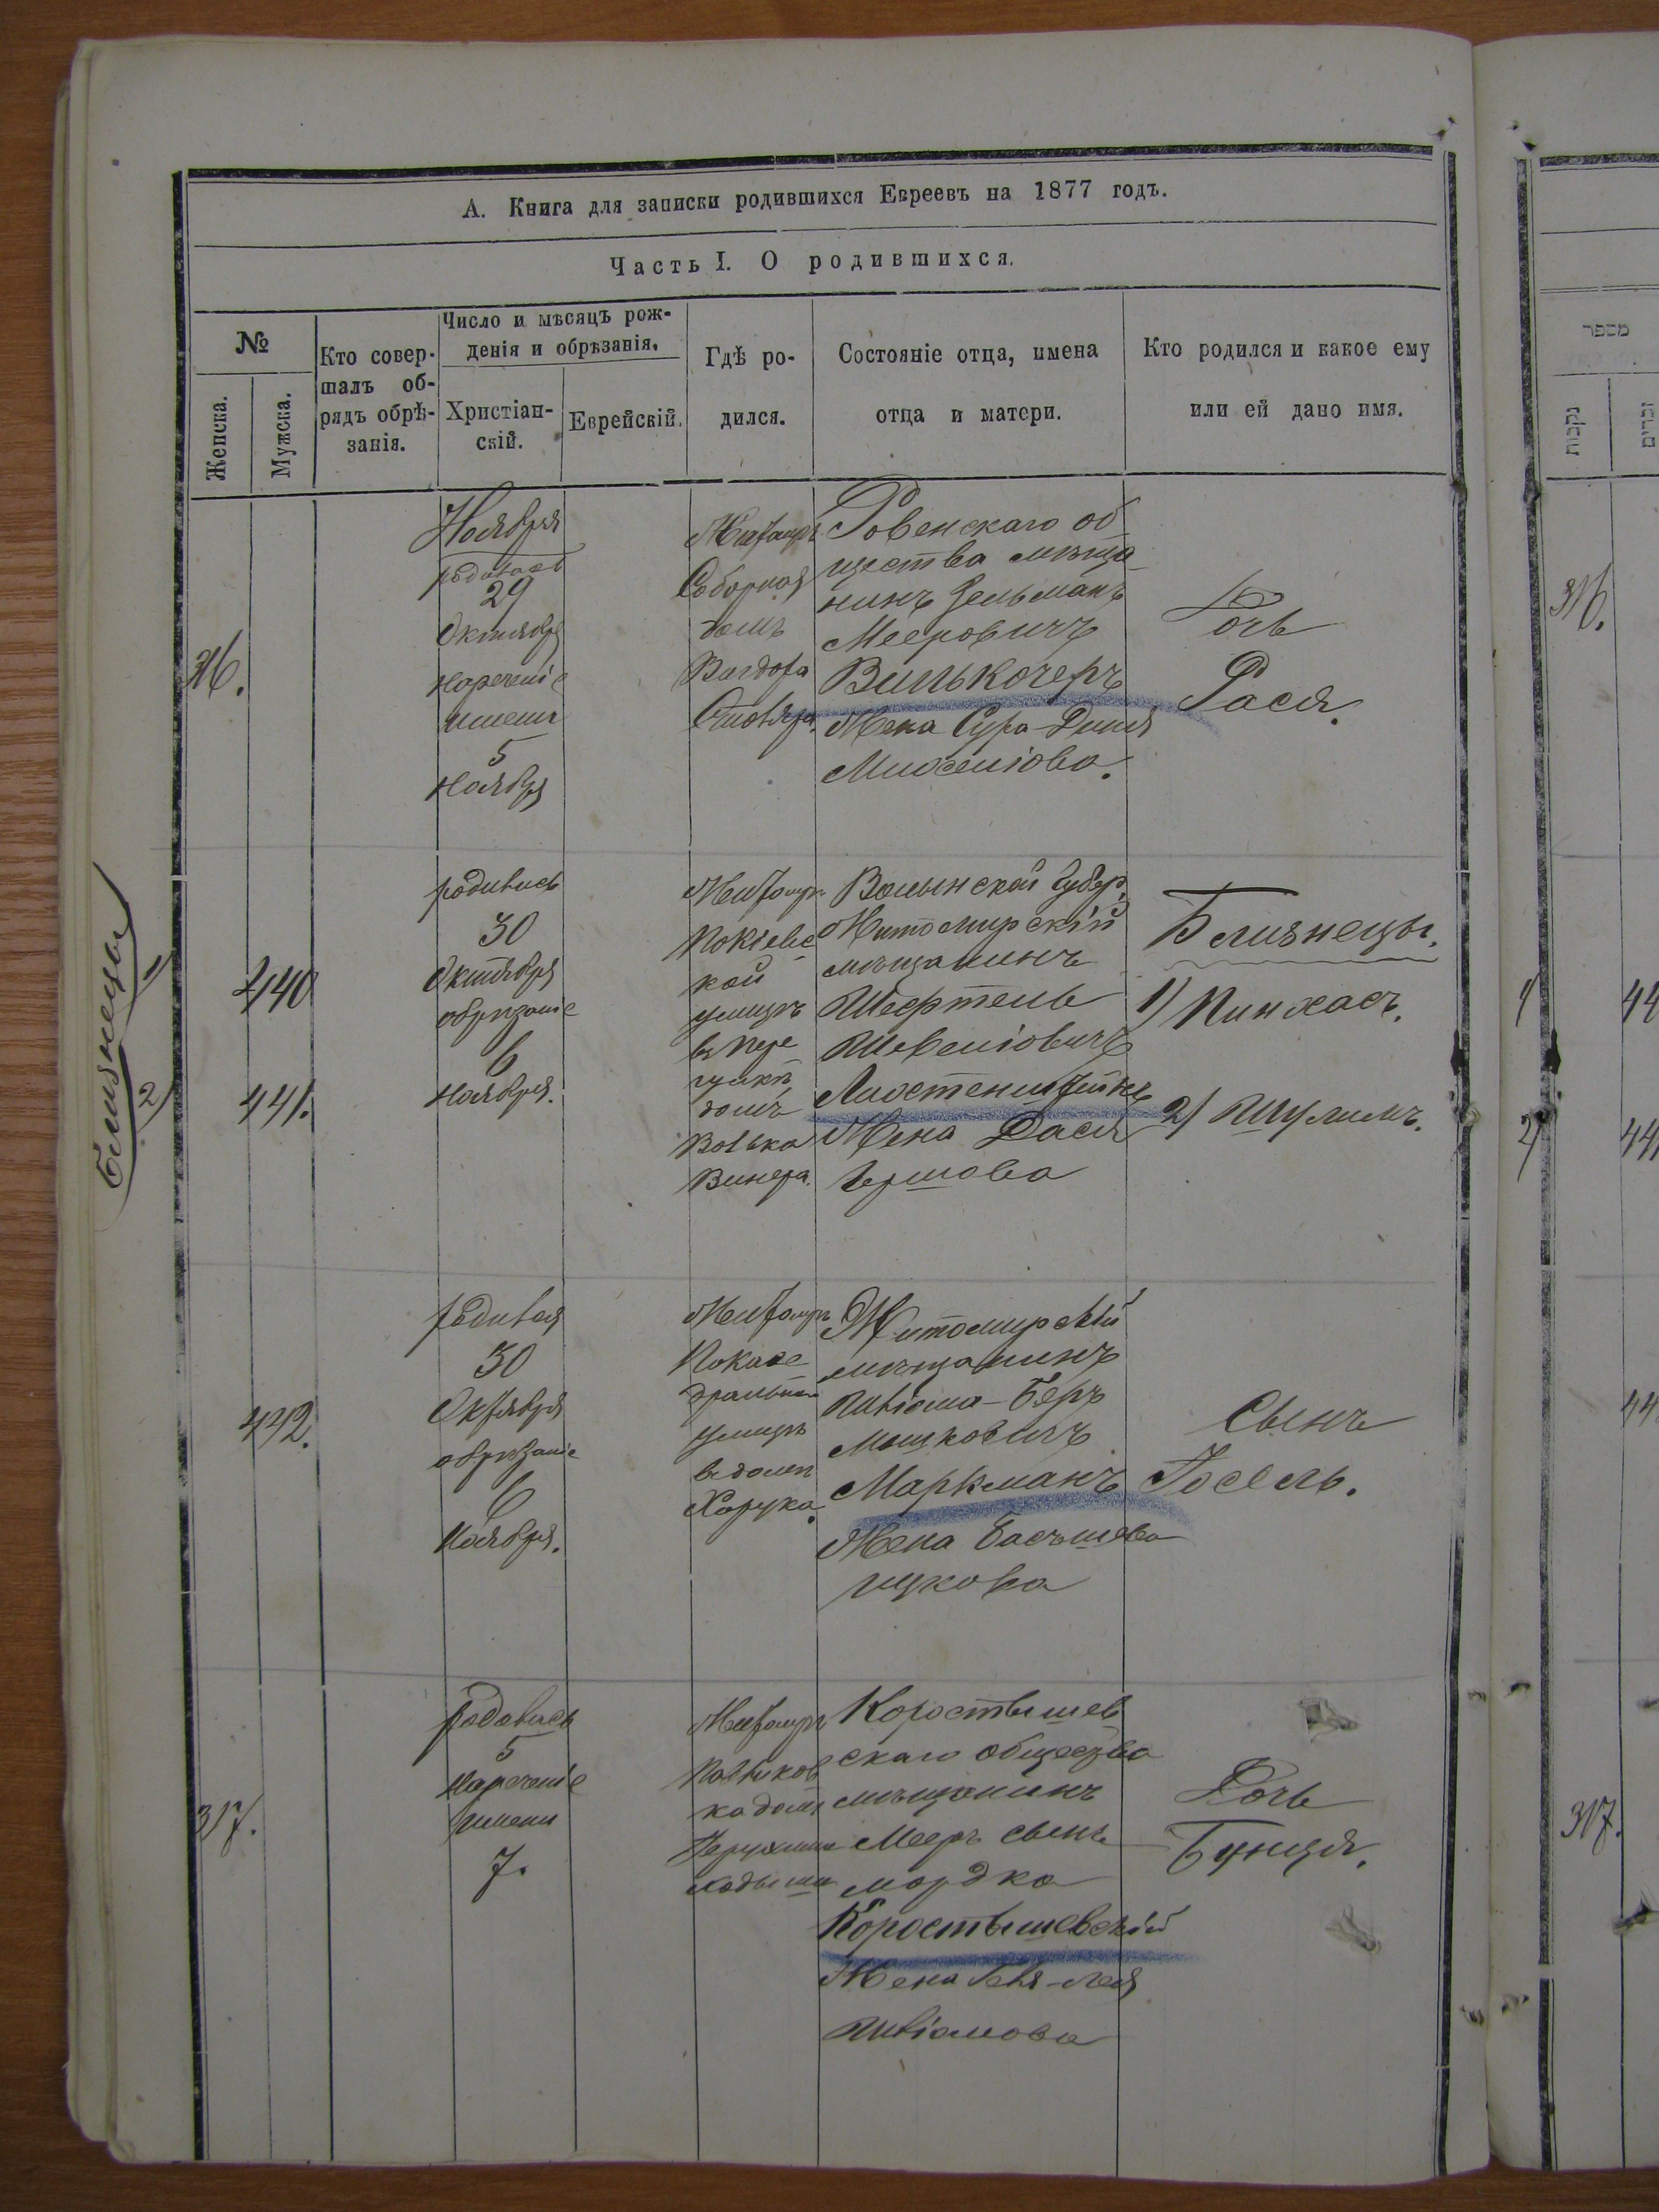 А. Книга для записки родившихся Евреевъ на 1877 годъ.
Часть I. О родившихся.
№
Женска.
Мужска.
Кто совер-
шалъ об-
рядъ обрѣ-
занія.
Число и мѣсяцъ рож-
денія и обрѣзанія.
Христіан-
скій.
Еврейскій.
Гдѣ ро-
дился.
Состояніе отца, имена
отца и матери.
Кто родился и какое ему
или ей дано имя.
316.
Ноября
родилась
29
Октября
нареченіе
имени
5
Ноября
Житомръ
Соборная
домъ
Ровенскаго об
щества мѣща
нинъ Зельманъ
Мееровичъ
Вилькочеръ
Жена Сура-Диня
Дочь
Рася.
Близнецы
1)
2)
440
441.
родились
30
Октября
обрѣзаніе
6
Ноября.
Житомръ
по Кіевс
кой
улицѣ
въ пере
улкѣ
домъ
Волька
Винера.
Волынской Губер.
Житомирскій
мѣщанинъ
Шефтель
Жена Дася
Гершова
Близнецы.
1) Пинхасъ.
2) Шулимъ.
442.
родился
30
Октября
обрѣзаніе
6
Ноября.
Житомръ
По Кафе
дральной
улицѣ
въ домѣ
Житомирскій
мѣщанинъ
Мошковичъ
Маркманъ
Жена Басъшева
Ицкова
Сынъ
Іосель.
317.
родилась
5
Наречение
имени
7.
Житомръ
Коростышев
скаго общества
мѣщанинъ
Мееръ сынъ
Мордка
Коростышевскій
Дочь
Бунця.
מספר
נקבות
זכרים
316.
1)
44
2)
441
44
317.